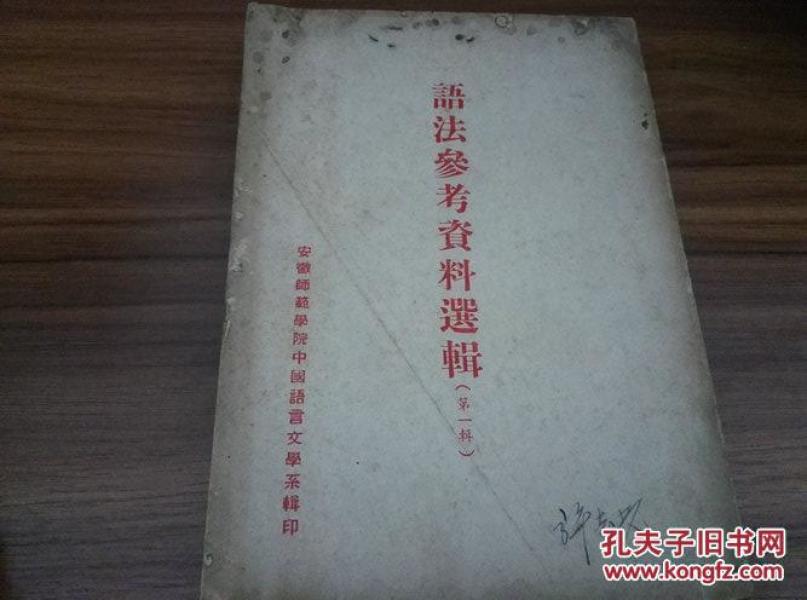 語法參考資料選輯
(第一輯)
安徽師範學院中國語言文學系輯印
孔夫子旧书网
www.kongfz.com